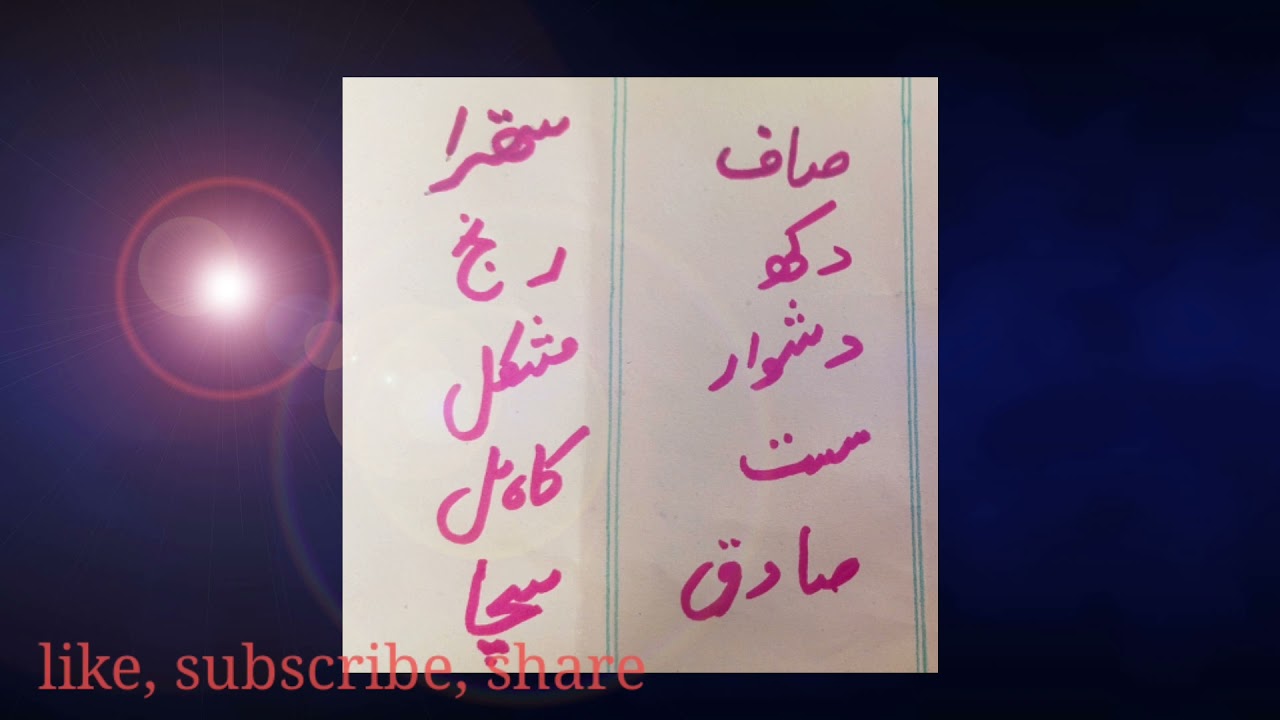 صاف ستھرا
دکھ رنج
دشوار مشکل
سست کاہل
صادق سچا
like, subscribe, share